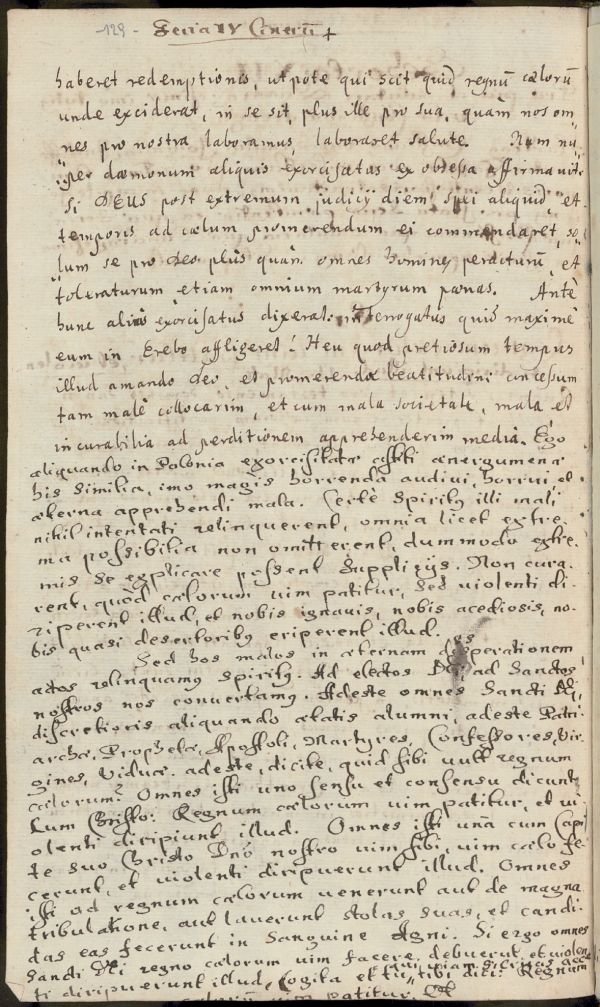 -129- Feria IV Cinerū +
haberet redemptionis, utpote qui scit quid regnū cœlorū
unde exciderat, in se sit, plus ille pro sua, quàm nos om
nes pro nostra laboramus, laboraret salute. Nam nu
per dæmonum aliquis exorcisatus ex obsessa affirmavit
si DEUS post extremum judicij diem spei aliquid, et
temporis ad cœlum promerendum ei commendaret, so
lum se pro Deo plùs quàm omnes homines peracturū, et
toleraturum etiam omnium martyrum pœnas. Antè
hunc alius exorcisatus dixerat: interrogatus quid maximè
eum in Erebo affligeret! Heu quod pretiosum tempus
illud amando Deo, et promerendæ beatitudini concessum
tam malè collocarim, et cum mala societate, mala et
incurabilia ad perditionem apprehenderim media. Ego
aliquando in Polonia exorcisitatæ astiti energumenæ
his similia, imo magis horrenda audivi, horrui et
æterna apprehendi mala. Certè Spirity illi mali
nihil intentati relinquerent, omnia licet extre
ma possibilia non omitterent, dummodo extre
mis se explicare possent supplicijs. Non cura
rent, quòd cœlorum vim patitur, sed violenti di
riperent illud, et nobis ignavis, nobis acediosis, no
bis quasi desertoriby eriperent illud.
Sed hos malos in æternam desperationem
actos relinquamy spirity. Ad electos Dei, ad Sanctos
nostros nos convertamy. Adeste omnes Sancti Dei,
discretioris aliquando ætatis alumni, adeste Patri
archæ, Prophetæ, Apostoli, Martyres, Confessores, Vir
gines, Viduæ. adeste, dicite, quid sibi vult regnum
cœlorum? Omnes isti uno sensu et consensu dicunt
cum Christo: Regnum cœlorum vim patitur, et vi
olenti diripiunt illud. Omnes isti unà cum Capi
te suo Christo Dnō nostro vim sibi, vim cœlo fe
cerunt, et violenti diripuerunt illud. Omnes
isti ad regnum cœlorum venerunt aut de magna
tribulatione, aut laverunt stolas suas, et candi
das eas fecerunt in sanguine Agni. Si ergo omnes
Sancti Dei regno cœlorum vim facere debuerunt, et violen
ti diripuerunt illud, cogita et tu, tibi dici: Regnum
cœlorum vim patitur